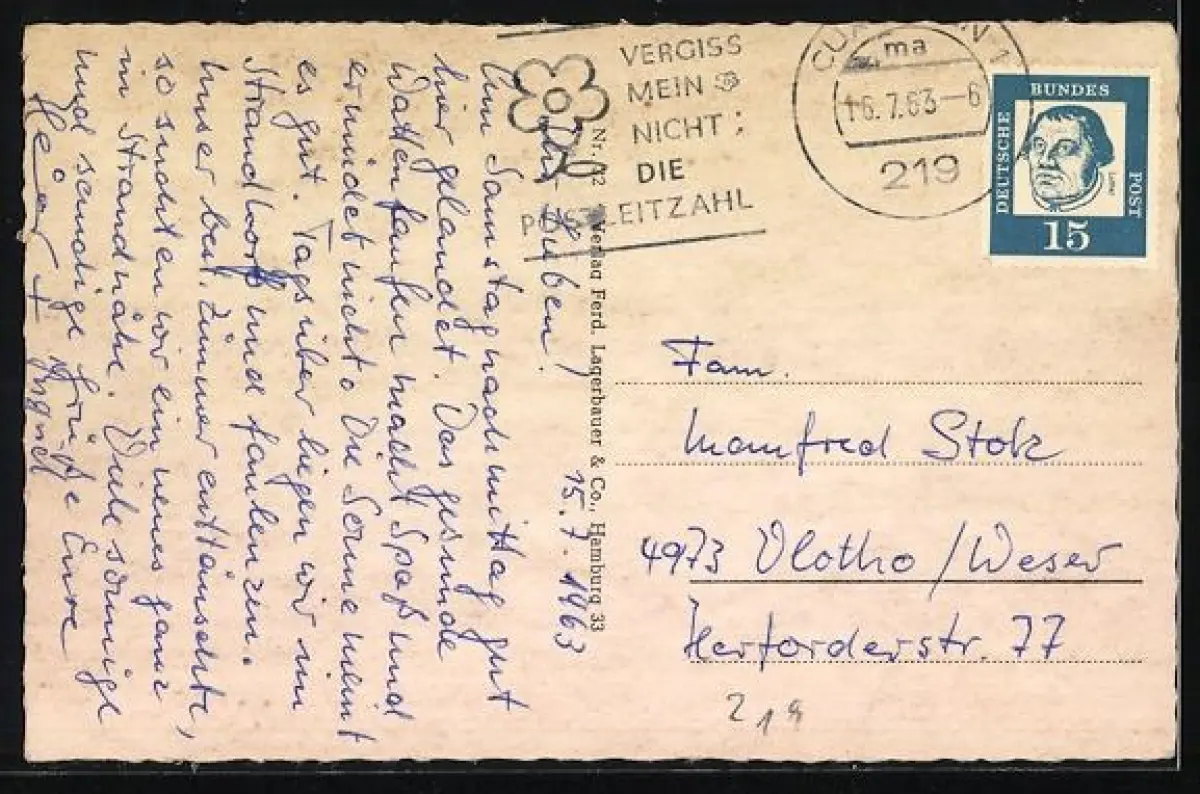 15.7.1963
Ihr Lieben!
Am Samstagnachmittag gut
hier gelandet. Das gesunde
Wattenlaufen macht Spaß und
ermüdet nicht. Die Sonne meint
es gut. Tagsüber liegen wir im
Strandkorb und faulenzen.
Unser best. Zimmer enttäuschte,
so suchten wir ein neues ganz
in Strandnähe. Viele sonnige
und sandige Grüße Eure
+ Ingrid
Nr.
Verlag Ferd. Lagerbauer & Co., Hamburg 33
VERGISS
MEIN
NICHT:
DIE
POSTLEITZAHL
ma
16.7.63-6
219
DEUTSCHE
BUNDES
POST
Luther
15
Fam.
Manfred Stok
4973 Vlotho/Weser
Herforderstr. 77
219